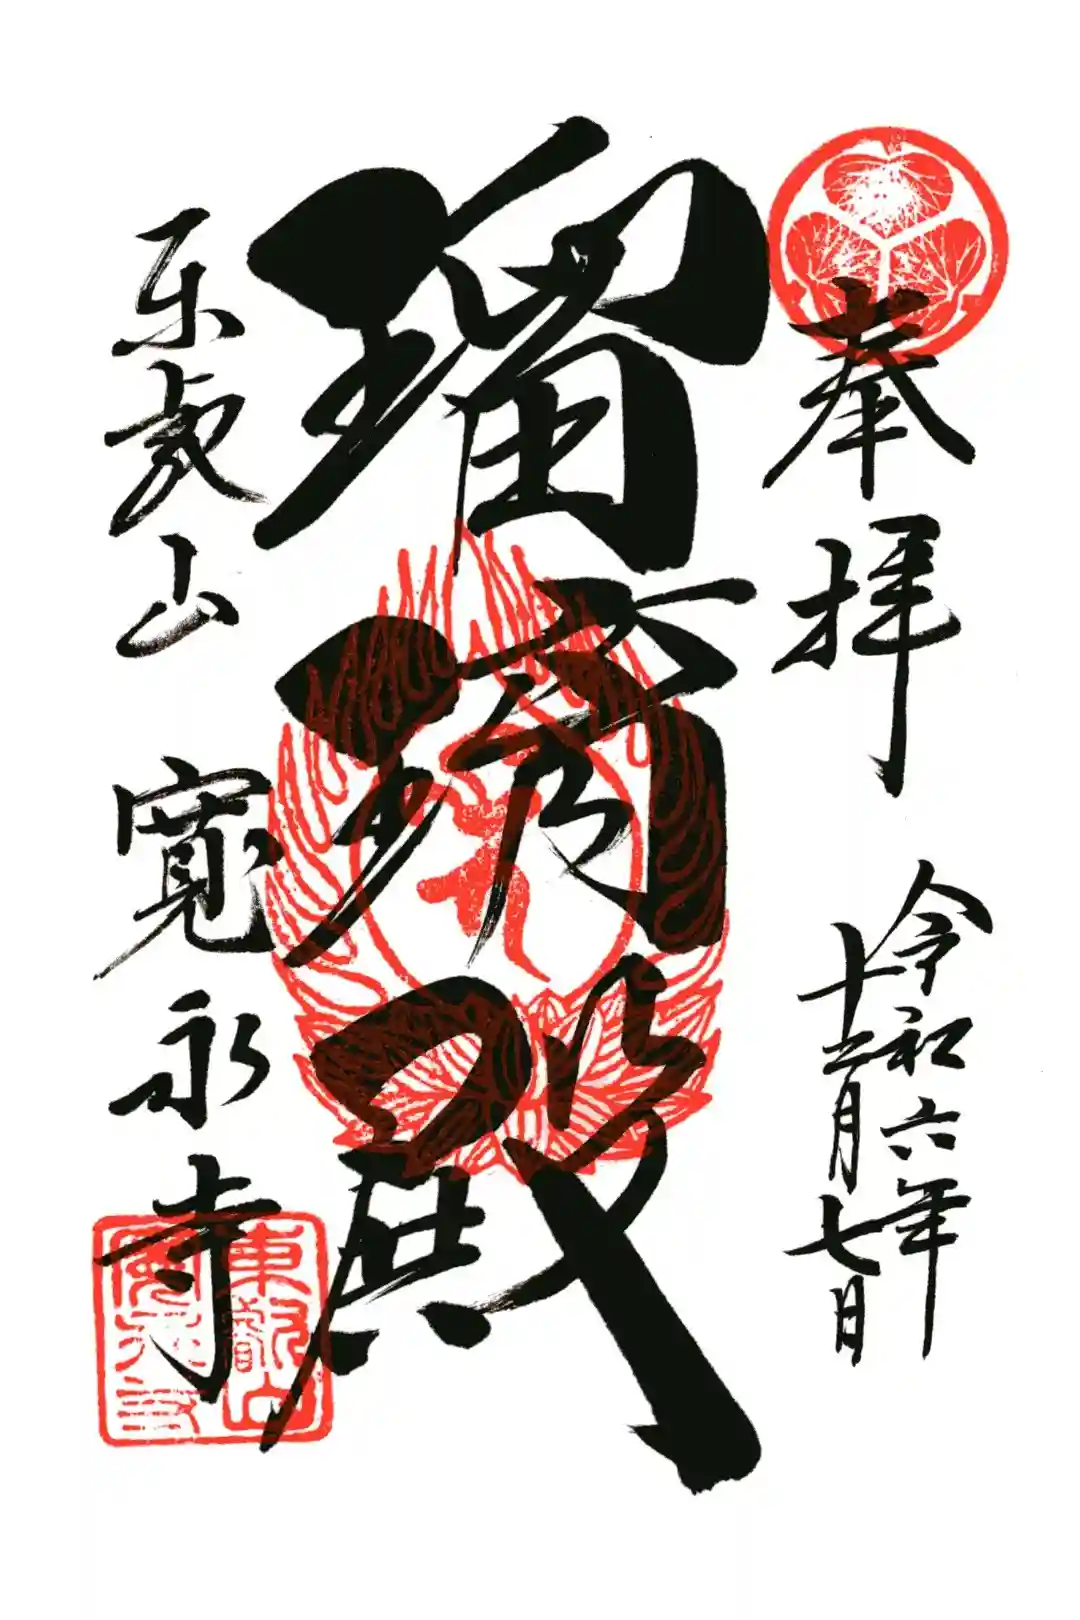 奉拝
令和六年
十二月七日
瑠璃殿
东叡山 寛永寺
東叡山